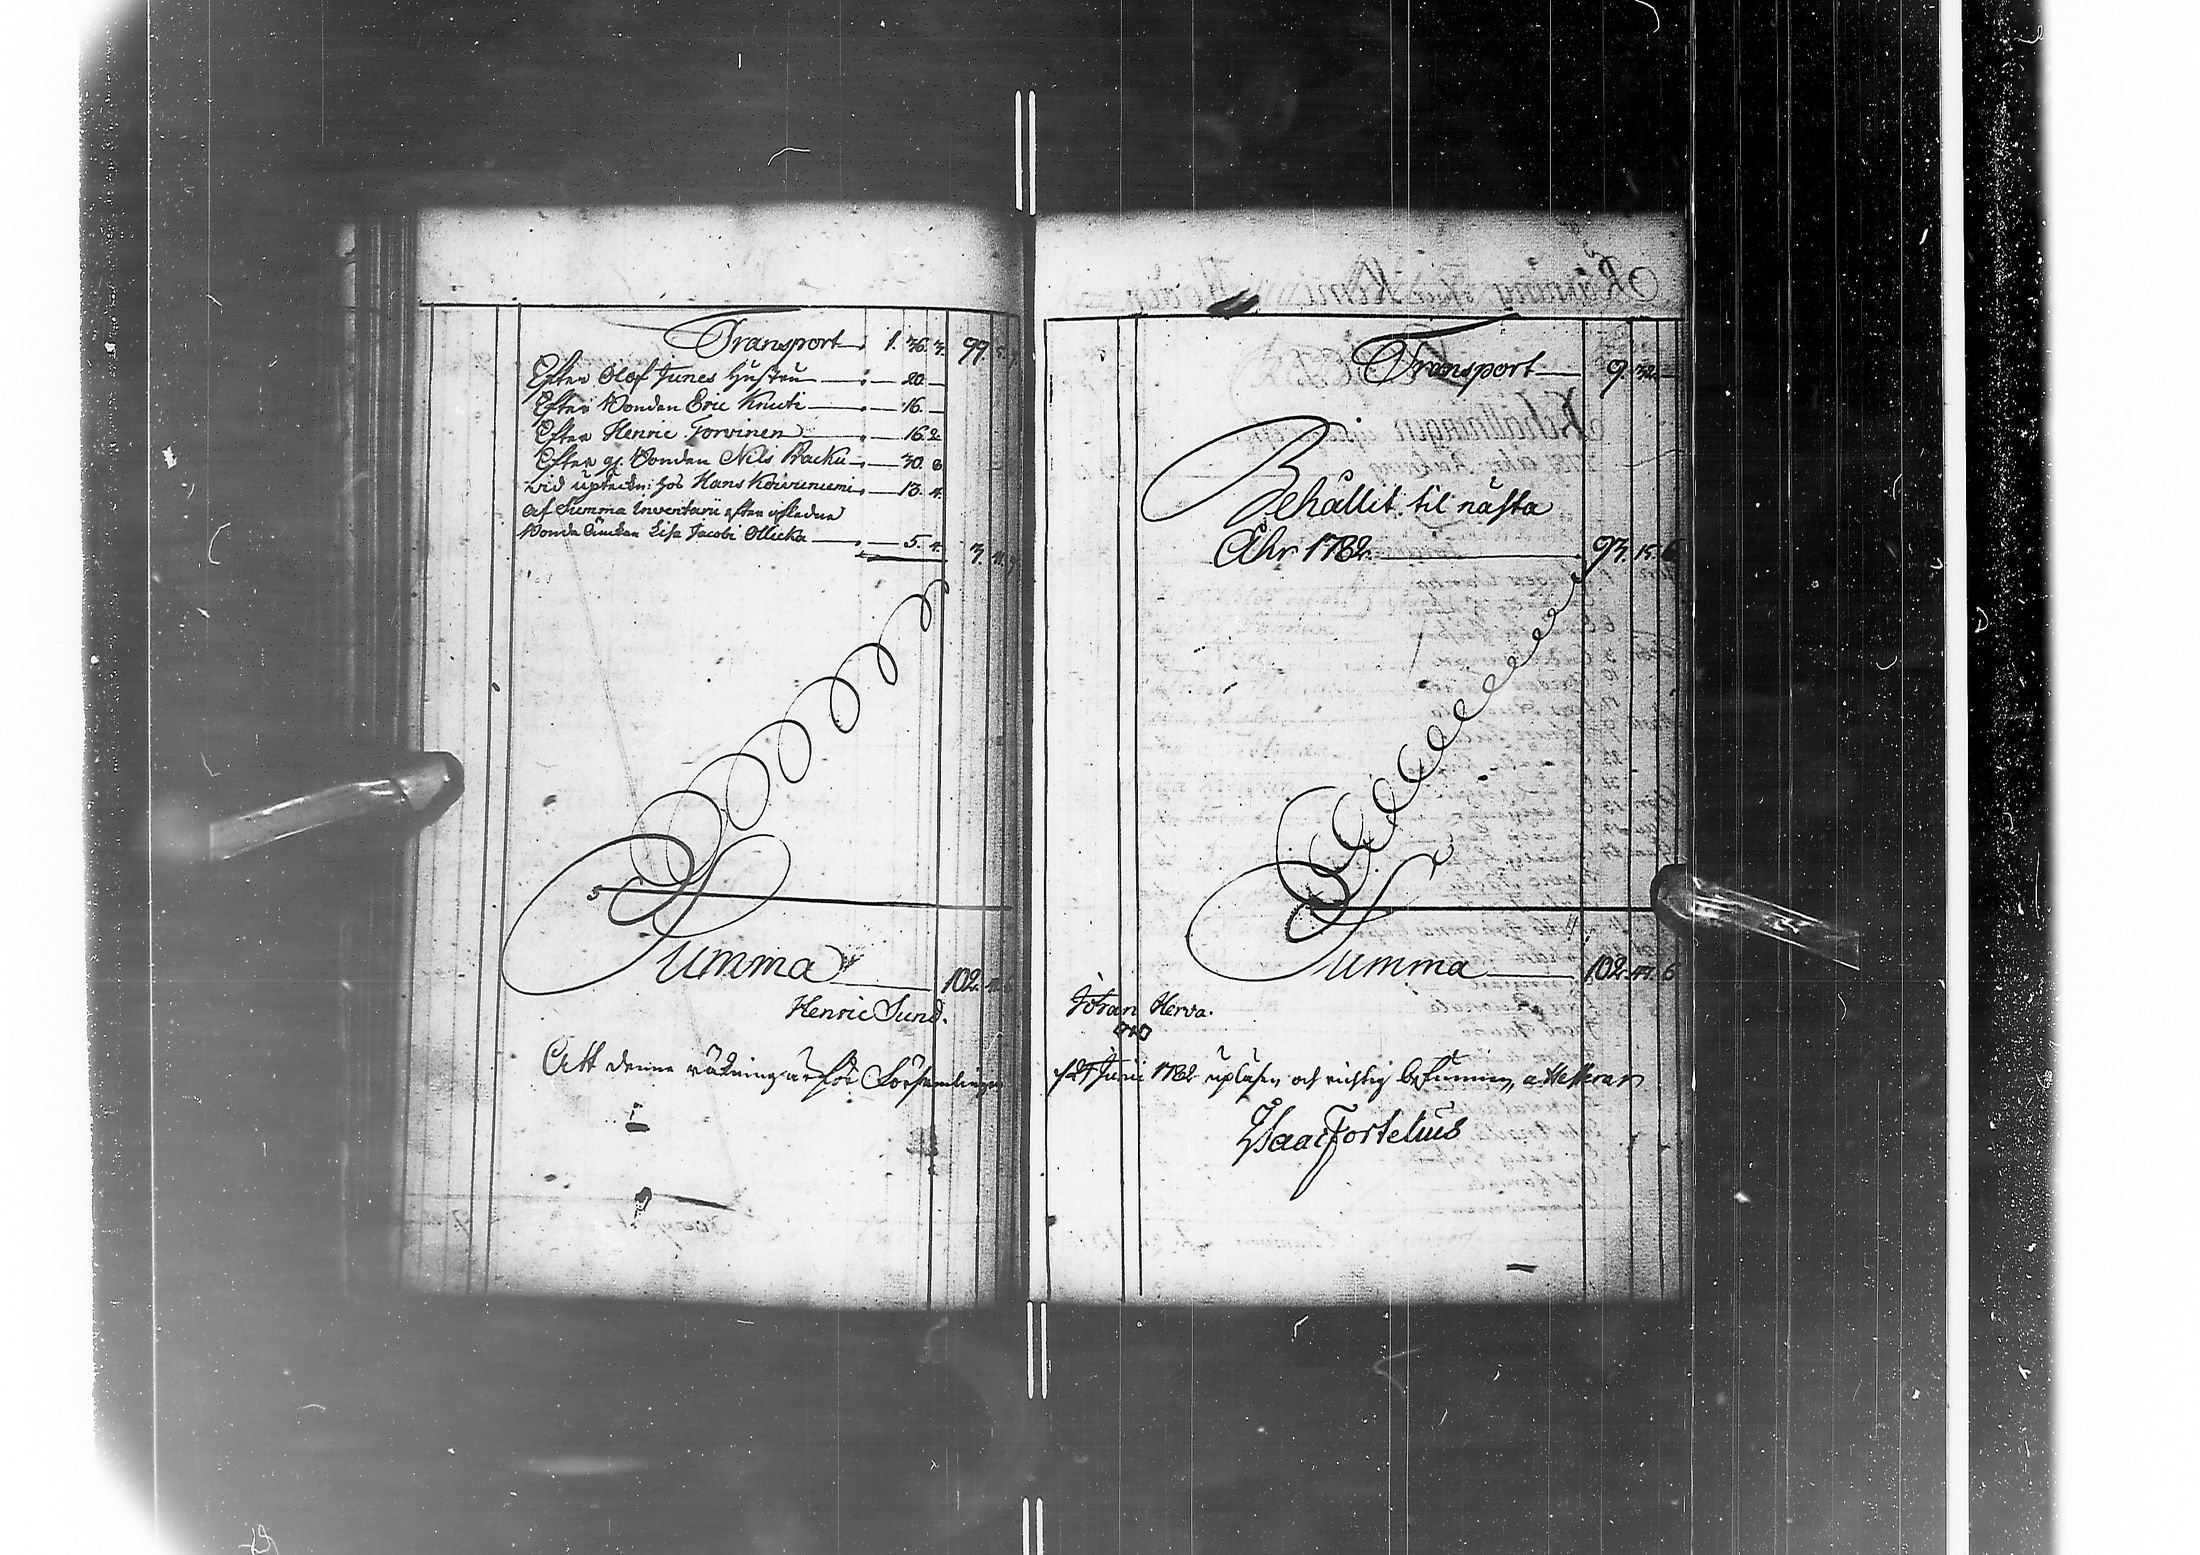 Transport 1. 36. 3. 99. 5.
Efter Olof Junes Hustru 20.
Efter Bonden Eric Knuti 16.
Efter Henric Torvinen 16. 2.
Efter gl. Bonden Nils Backu 30. 8
wid upteckn: hos Hans Koivuniemi 13. 4.
af Summa Inventarii efter
Bonde Änckan Lisa Jacobi Ollicka 5. 4. 3.
Summa 102.
Henric Sund.
Att denne räkning är för Församlingen
Transport 9. 32.
Behållit til nästa
Åhr 1762 93. 15. 6
Summa 102. 47. 6
Johan Herva.
d 27 Junii 1762 upläsen och richtig befunnen, attesterar
Isaac Fortelius